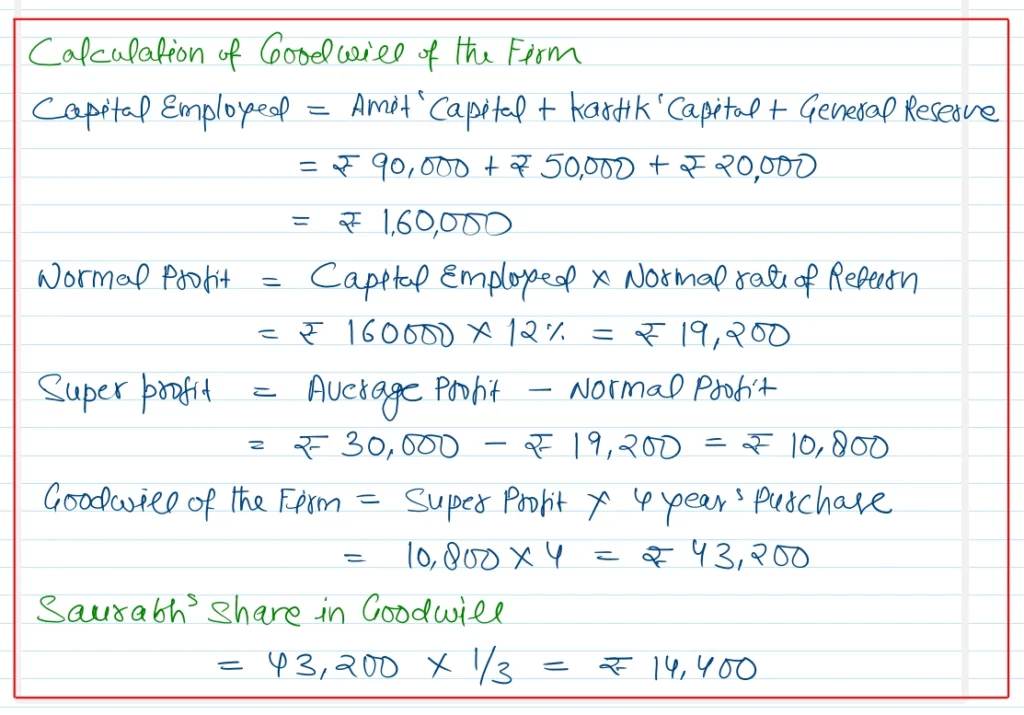 Calculation of Goodwill of the Firm
Capital Employed = Amit' Capital + Kartik' Capital + General Reserve
= ₹ 90,000 + ₹ 50,000 + ₹ 20,000
= ₹ 1,60,000
Normal Profit = Capital Employed × Normal rate of Return
= ₹ 160000 × 12% = ₹ 19,200
Super profit = Average Profit – Normal Profit
= ₹ 30,000 – ₹ 19,200 = ₹ 10,800
Goodwill of the Firm = Super Profit × 4 year's Purchase
= 10,800 × 4 = ₹ 43,200
Saurabh's Share in Goodwill
= 43,200 × 1/3 = ₹ 14,400